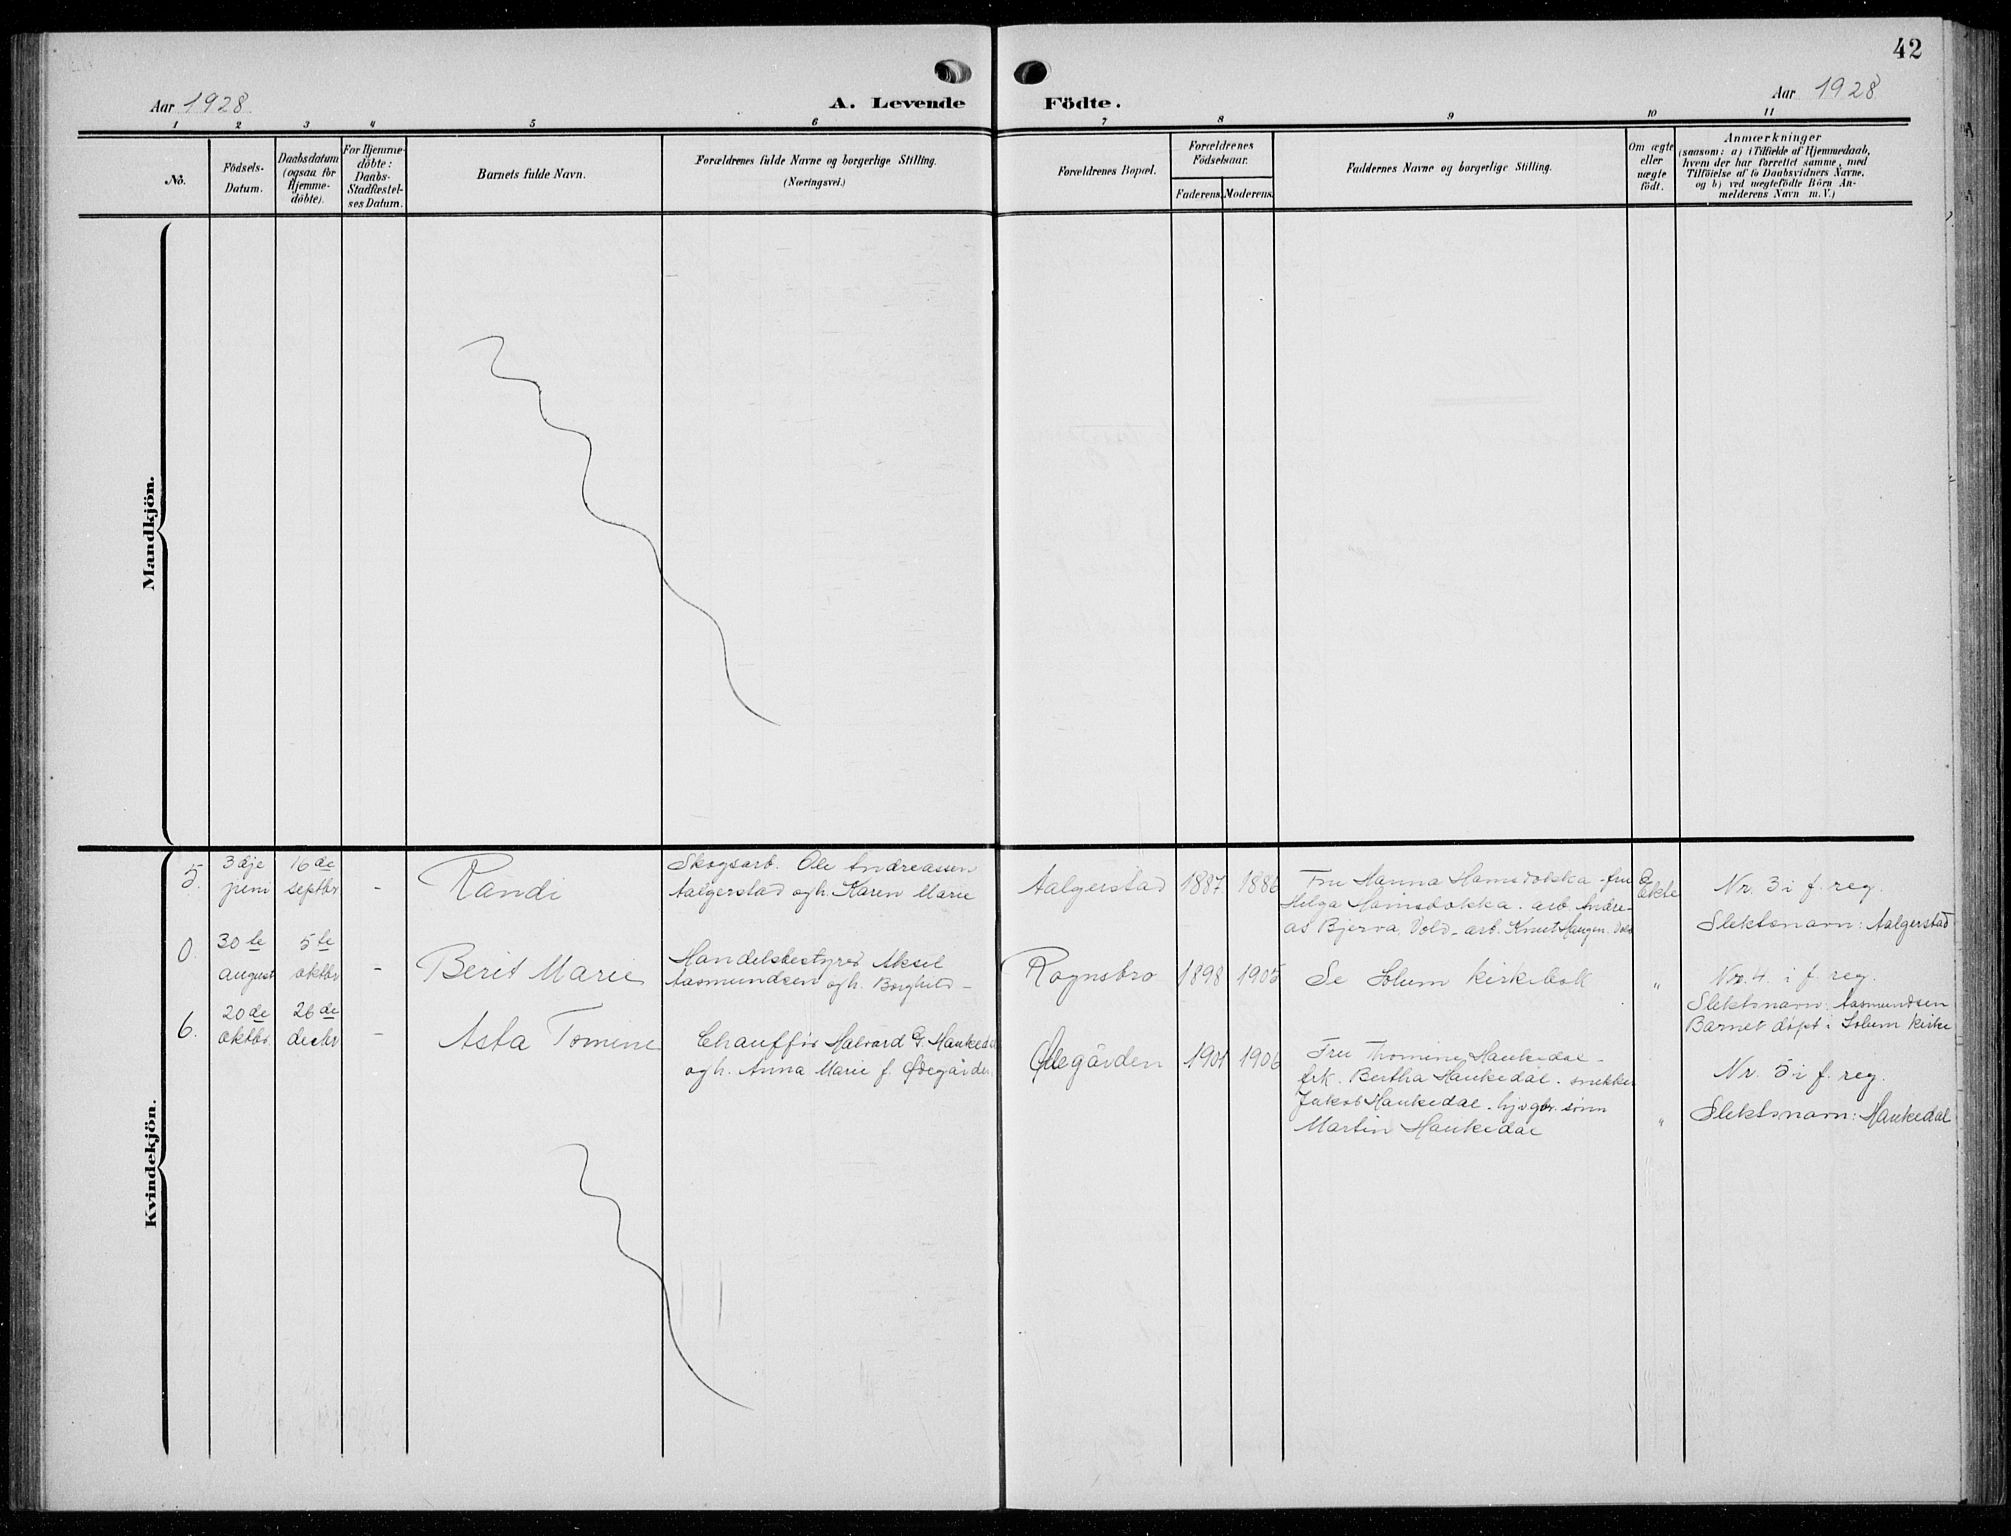 42
Aar 1928
A. Levende
Födte.
Aar 1928
1 2 3 4 5 6 7 8 9 10 11
No.
Födsels-
Datum.
Daabsdatum
(ogsaa for
Hjemme-
döbte).
For Hjemme-
döbte:
Daabs-
Stadfæstel-
ses Datum.
Barnets fulde Navn.
Forældrenes fulde Navne og borgerlige Stilling.
(Næringsvei.)
Forældrenes Bopæl.
Forældrenes
Födselsaar.
Faderens. Moderens.
Faddernes Navne og borgerlige Stilling.
Om ægte
eller
uægte
födt.
Anmærkninger
(saasom: a) i Tilfælde af Hjemmedaab,
hvem der har forrettet samme, med
Tilföielse af to Daabsvidners Navne,
og b) ved uægtefödte Börn An-
melderens Navn m. V.)
Mandkjön.
Kvindekjön.
5.
3dje
juni
16de
septbr
-
Randi
Skogsarb. Ole Andreassen
Aalgerstad og h. Karen Marie
Aalgerstad
1887
1886
Fru Hanna Hamsdokka - fru
Helga Hamsdokka. arb. Andre-
as Bjerva Vold - arb. Knut Haugen. Vold
Ekte
Nr. 3 i f. reg.
Slektsnavn: Aalgerstad
0.
30te
august
5te
oktbr
-
Berit Marie
Handelsbestyrer Aksel
Aasmundsen og h. Borghild -
Rognsbro
1898
1905
Se Solum kirkebok
"
Nr. 4. i f. reg.
Slektsnavn: Aasmundsen
Barnet døpt i Solum kirke
6.
20de
oktbr.
26de
decbr
-
Asta Tomine
Chauffør Halvard G. Haukedal
og h. Anna Marie f. Ødegården
Ødegården
1901
1906
Fru Thomine Haukedal -
frk. Bertha Haukedal. snekker
Jakob Haukedal. hj.v. gbr. sønn
Martin Haukedal
"
Nr. 5 i f. reg.
Slektsnavn: Haukedal